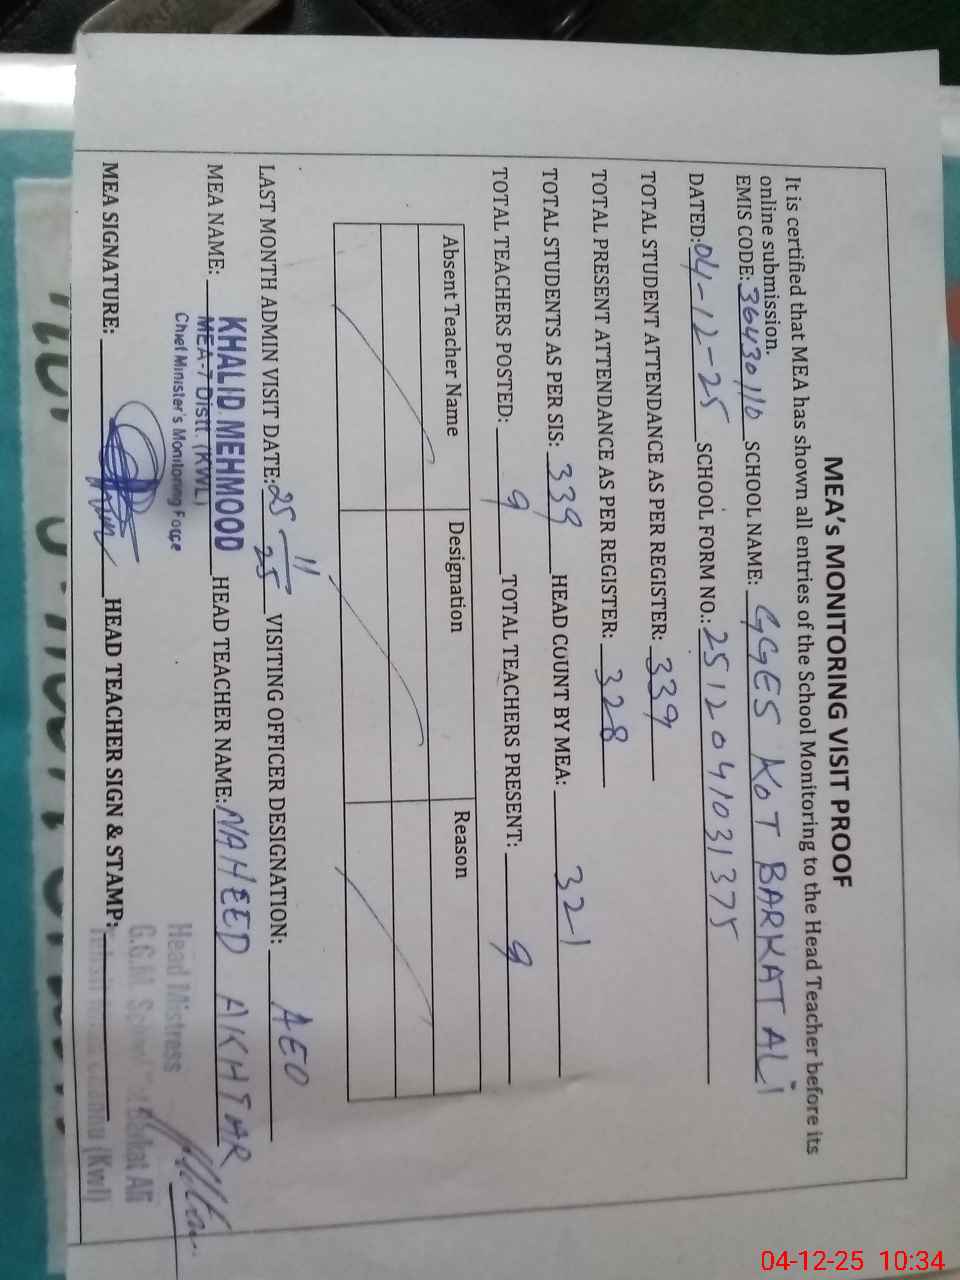 MEA's MONITORING VISIT PROOF
It is certified that MEA has shown all entries of the School Monitoring to the Head Teacher before its
online submission.
EMIS CODE: 36430110 SCHOOL NAME: GGES KOT BARKAT ALi
DATED: 04-12-25 SCHOOL FORM NO.: 2512041031375
TOTAL STUDENT ATTENDANCE AS PER REGISTER: 339
TOTAL PRESENT ATTENDANCE AS PER REGISTER: 328
TOTAL STUDENTS AS PER SIS: 339 HEAD COUNT BY MEA: 321
TOTAL TEACHERS POSTED: 9 TOTAL TEACHERS PRESENT: 9
Absent Teacher Name Designation Reason
LAST MONTH ADMIN VISIT DATE: 25 11/25 VISITING OFFICER DESIGNATION: AEO
MEA NAME: KHALID MEHMOOD HEAD TEACHER NAME: NAHEED AKHTAR
MEA-7 Distt. (KWL)
Chief Minister's Monitoring Force
Head Mistress
MEA SIGNATURE: HEAD TEACHER SIGN & STAMP:
04-12-25 10:34